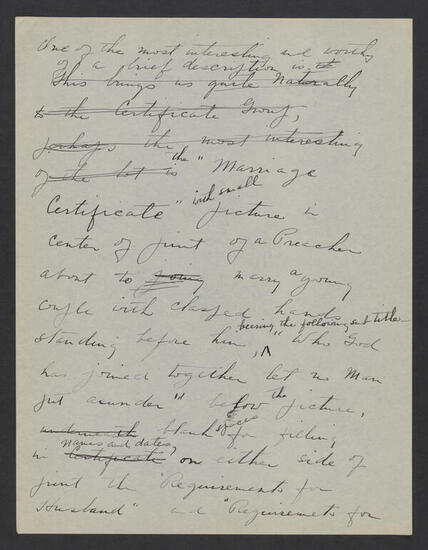 One of the most interesting and worthy
of a brief description is
This brings us quite Naturally
to the Certificate Group,
perhaps the most interesting
of the lot is the " Marriage
Certificate " with small picture in
center of print of a Preacher
about to marry a young
couple with clasped hands
bearing the following sub title
standing before him, ^ "Who God
has joined together let no Man
put asunder" below the picture,
underneath blank spaces for filling
names and dates
in Certificate, on either side of
print the "Requirements for
Husband" and "Requiremets for